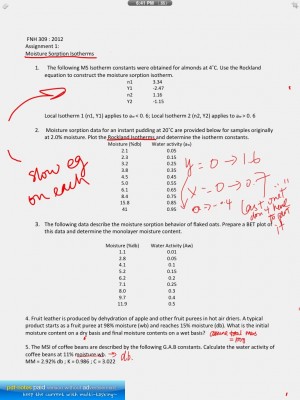 FNH 309 : 2012
Assignment 1:
Moisture Sorption Isotherms
1. The following MS Isotherm constants were obtained for almonds at 4°C. Use the Rockland
equation to construct the moisture sorption isotherm.
n1 3.34
Y1 -2.47
n2 1.16
Y2 -1.15
Local Isotherm 1 (n1, Y1) applies to aw < 0. 6; Local Isotherm 2 (n2, Y2) applies to aw > 0. 6
2. Moisture sorption data for an instant pudding at 20°C are provided below for samples originally
at 2.0% moisture. Plot the Rockland Isotherms and determine the isotherm constants.
Moisture (%db) Water activity (aw)
2.1 0.05
2.3 0.15
3.2 0.25
3.8 0.35
4.5 0.45
5.0 0.55
6.1 0.65
8.4 0.75
15.8 0.85
41 0.95
y = 0 → 1.6
x = 0 → 0.7
slow eg
on each
3. The following data describe the moisture sorption behavior of flaked oats. Prepare a BET plot of
this data and determine the monolayer moisture content.
Moisture (%db) Water Activity (Aw)
1.1 0.01
3.8 0.05
4.1 0.1
5.2 0.15
6.2 0.2
7.1 0.25
8.0 0.3
9.7 0.4
11.9 0.5
4. Fruit leather is produced by dehydration of apple and other fruit purees in hot air driers. A typical
product starts as a fruit puree at 98% moisture (wb) and reaches 15% moisture (db). What is the initial
moisture content on a dry basis and final moisture contents on a wet basis?
5. The MSI of coffee beans are described by the following G.A.B constants. Calculate the water activity of
coffee beans at 11% moisture wb. → db.
MM = 2.92% db ; K = 0.986 ; C = 3.022